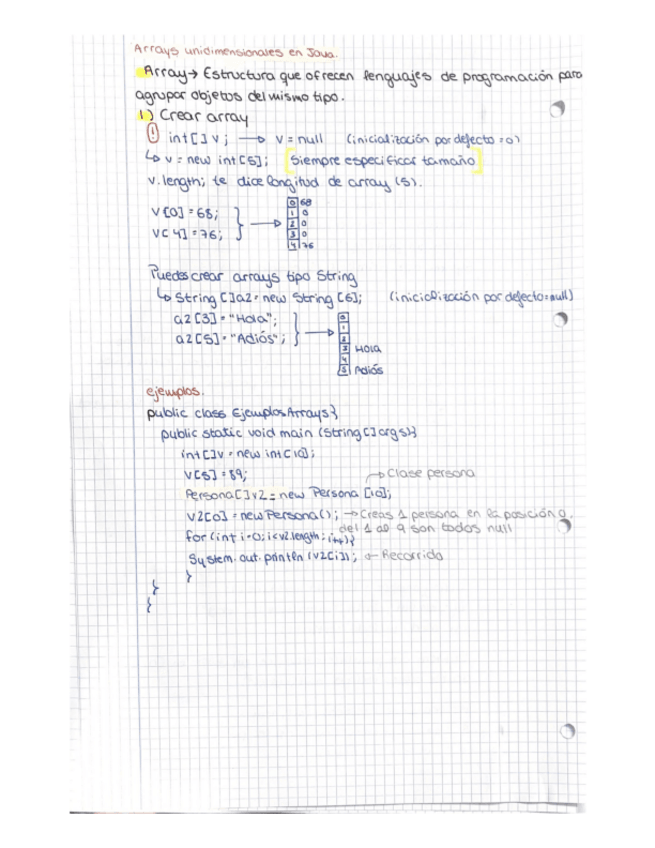 Arrays unidimensionales en Java.
Array→ Estructura que ofrecen lenguajes de programación para
agrupar objetos del mismo tipo.
1) Crear array
! int[] v; → v = null (inicialización por defecto = 0)
↳ v = new int[5]; [Siempre especificar tamaño]
v.length; te dice longitud de array (5).
v[0] = 68;
v[4] = 76;
0 68
1 0
2 0
3 0
4 76
Puedes crear arrays tipo String
↳ String []a2 = new String [6]; (inicialización por defecto=null)
a2[3] = "Hola";
a2[5] = "Adiós";
0
1
2
3 Hola
4
5 Adiós
ejemplos.
public class EjemplosArrays{
public static void main (String[] args){
int[]v = new int[10];
v[5] = 89;
→ Clase persona
Persona[]v2 = new Persona [10];
v2[0] = new Persona(); → Creas 1 persona en la posición 0.
del 1 al 9 son todos null
for(int i=0; i<v2.length; i++){
System.out.println (v2[i]); ← Recorrido
}
}
}